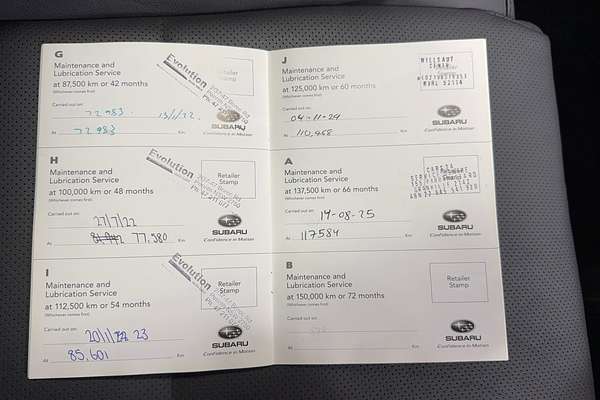 G
Maintenance and
Lubrication Service
at 87,500 km or 42 months
(Whichever comes first)
Evolution
Retailer
Stamp
Carried out on:
72,983 13/1/22
At 72983 Km
SUBARU
Confidence in Motion
H
Maintenance and
Lubrication Service
at 100,000 km or 48 months
(Whichever comes first)
Evolution
Retailer
Stamp
Carried out on:
27/7/22
At 77,380 Km
SUBARU
Confidence in Motion
I
Maintenance and
Lubrication Service
at 112,500 km or 54 months
(Whichever comes first)
Evolution
Retailer
Stamp
Carried out on:
23
At 85,601 Km
SUBARU
Confidence in Motion
J
Maintenance and
Lubrication Service
at 125,000 km or 60 months
(Whichever comes first)
Carried out on:
04-11-24
At 110,458 Km
SUBARU
Confidence in Motion
A
Maintenance and
Lubrication Service
at 137,500 km or 66 months
(Whichever comes first)
Carried out on:
19-08-25
At 117584 Km
SUBARU
Confidence in Motion
B
Maintenance and
Lubrication Service
at 150,000 km or 72 months
(Whichever comes first)
Retailer
Stamp
Carried out on:
At Km
SUBARU
Confidence in Motion